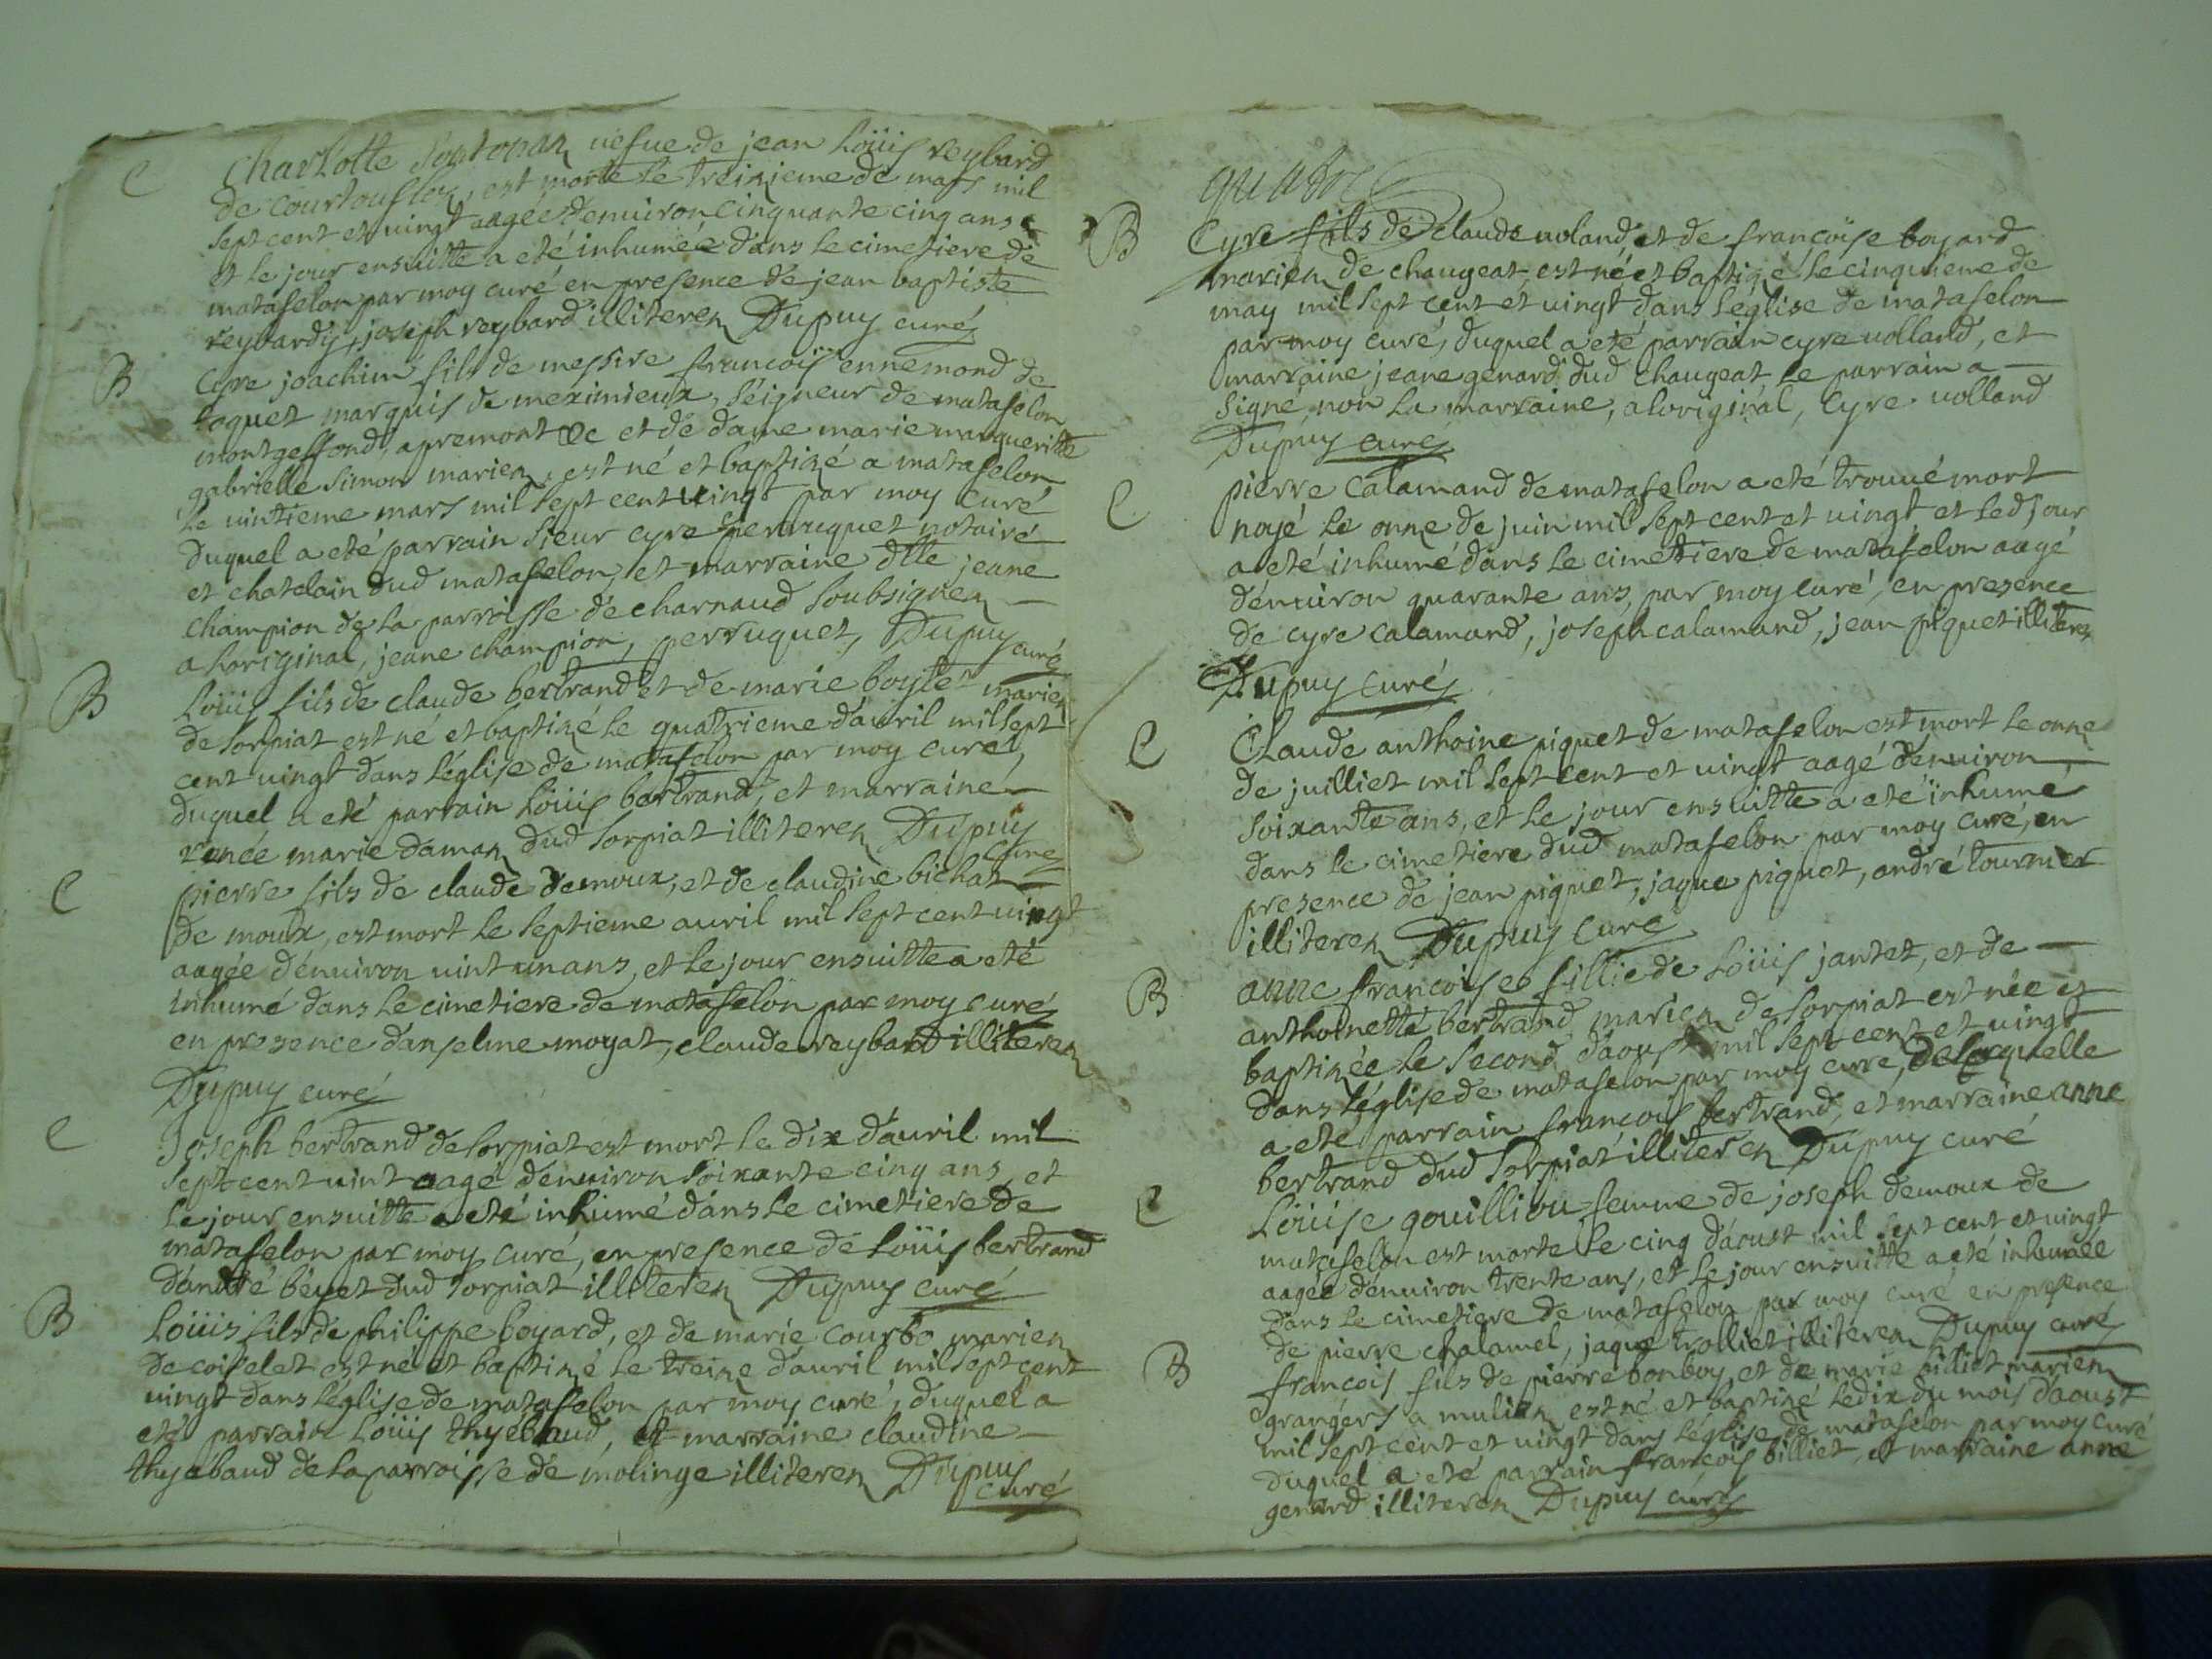 C
Charlotte vefue de jean Loüis reybard
de est morte le treizieme de mars mil
sept cent et uingt aagée denuiron cinquante cinq ans
et le jour ensuitte a eté inhumée dans le cimetiere de
matafelon par moy curé en presence de jean baptiste
reybard, joseph reybard illiterez Dupuy curé
B
Cyre joachim fils de messire francois ennemond de
marquis de meximieux, séigneur de matafelon
montgeffond, apremont &c et de dame marie margueritte
gabrielle simon mariez, est né et baptizé a matafelon
le uintieme mars mil sept cent uingt par moy curé
duquel a eté parrain sieur cyre perruquet notaire
et chatelain dud matafelon, et marraine dtte jeane
champion de la parroisse de charnaud soubsignez
a loriginal, jeane champion, perruquet, Dupuy curé
B
Loüis fils de claude bertrand et de marie mariez
de sorpiat est né et baptizé le quatrieme dauril mil sept
cent uingt dans léglise de matafelon par moy curé,
duquel a eté parrain Loüis bertrand, et marraine
renée marie damaz dud sorpiat illiterez Dupuy
curé
C
pierre fils de claude demoux, et de claudine bichat
de moux, est mort le septieme auril mil sept cent uingt
aagée dénuiron uint un ans, et le jour ensuitte a eté
inhumé dans le cimetiere de matafelon par moy curé
en presence danselme moyat, claude reybard illiterez
Dupuy curé
C
Joseph bertrand de sorpiat est mort le dix dauril mil
sept cent uint aagé denuiron soixante cinq ans, et
le jour ensuitte a eté inhumé dans le cimetiere de
matafelon par moy curé, en presence de Loüis bertrand
dandré dud sorpiat illiterez Dupuy curé
B
Loüis fils de philippe boyard, et de marie courbo mariez
de coiselet est né et baptizé le treize dauril mil sept cent
uingt dans léglise de matafelon par moy curé, duquel a
eté parrain Loüis thyebaud, et marraine claudine
thyebaud de la parroisse de molinge illiterez Dupuy
curé
quatre
B
Cyre fils de claude uoland et de francoise boyard
mariez de chaugeat, est né et baptizé le cinquieme de
may mil sept cent et uingt dans léglise de matafelon
par moy curé, duquel a eté parrain cyre uolland, et
marraine jeane genard dud chaugeat, le parrain a
signé non la marraine, a loriginal, Cyre uolland
Dupuy curé
C
pierre calamand de matafelon a eté trouué mort
noyé le onze de juin mil sept cent et uingt et led jour
a eté inhumé dans le cimetiere de matafelon aagé
dénuiron quarante ans, par moy curé, en presence
de cyre calamand, joseph calamand, jean piquet illiterez
Dupuy curé
C
Claude anthoine piquet de matafelon est mort le onze
de juilliet mil sept cent et uingt aagé denuiron
soixante ans, et le jour ensuitte a eté inhumé
dans le cimetiere dud matafelon par moy curé, en
presence de jean piquet, jaque piquet, andré tournier
illiterez Dupuy curé
B
anne francoise fillie de Loüis jantet, et de
anthoinette bertrand mariez de sorpiat est née et
baptizée le second daoust mil sept cent et uingt
dans léglise de matafelon par moy curé, de laquelle
a eté parrain francois bertrand, et marraine anne
bertrand dud sorpiat illiterez Dupuy curé
C
Loüise gouilliou femme de joseph demoux de
matafelon est morte le cinq daoust mil sept cent et uingt
aagée dénuiron trente ans, et le jour ensuitte a eté inhumée
dans le cimetiere de matafelon par moy curé en presence
de pierre chalamel, jaque trolliet illiterez Dupuy curé
B
francois fils de pierre bonboy, et de marie billiet mariez
grangers a est né et baptizé le dix du mois daoust
mil sept cent et uingt dans léglise de matafelon par moy curé
duquel a eté parrain francois billiet, et marraine anne
genard illiterez Dupuy curé